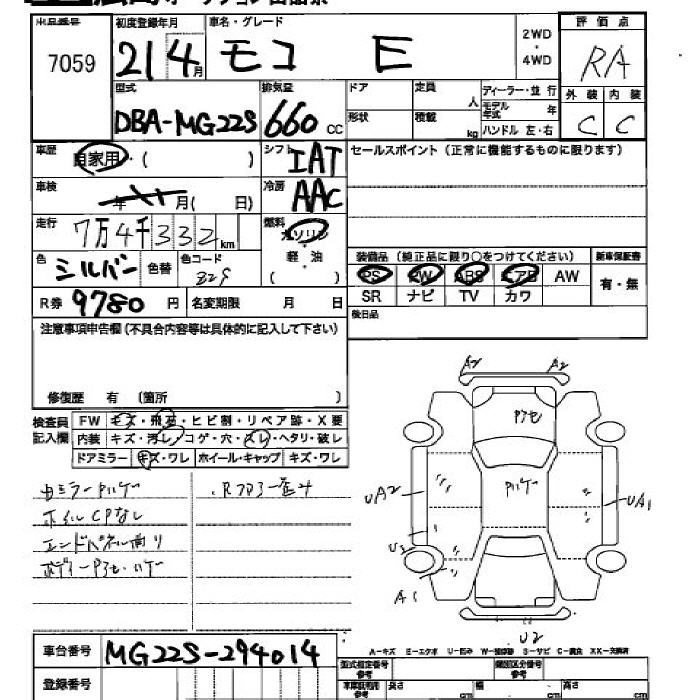 出品番号 7059
初度登録年月 21 4月
車名・グレード モコ E
2WD・4WD
評価点 RA
型式 DBA-MG22S
排気量 660 cc
ドア 定員 人
形状 積載 kg
ディーラー・並行
モデル年式 年
ハンドル 左・右
外装 内装
C C
車歴 自家用・( )
シフト IAT
セールスポイント(正常に機能するものに限ります)
車検 年 月( 日)
冷房 AAC
走行 7万4千332km
燃料 ガソリン・軽油 ( )
色 シルバー 色替 色コード
装備品(純正品に限り○をつけてください) 新車保証書
PS PW ABS エアB AW 有・無
SR ナビ TV カワ
R券 9780 円 名変期限 月 日
後日品
注意事項申告欄(不具合内容等は具体的に記入して下さい)
修復歴 有 (箇所 )
検査員記入欄
FW キズ・飛石・ヒビ割・リペア跡・X要
内装 キズ・汚レ・コゲ・穴・スレ・ヘタリ・破レ
ドアミラー キズ・ワレ ホイール・キャップ キズ・ワレ
ミラーPハゲ
ホイルCPなし
エンドパネル曲り
ボディーPアセ・ハゲ
A2 A2
Pアセ
Pハゲ
UA2 UA1
A1
U2
A-キズ E-エクボ U-凹み W-補修跡 S-サビ C-腐食 XX-交換済
車台番号 MG22S-294014
登録番号
型式指定番号 類別区分番号
長さ cm 幅 cm 高さ cm